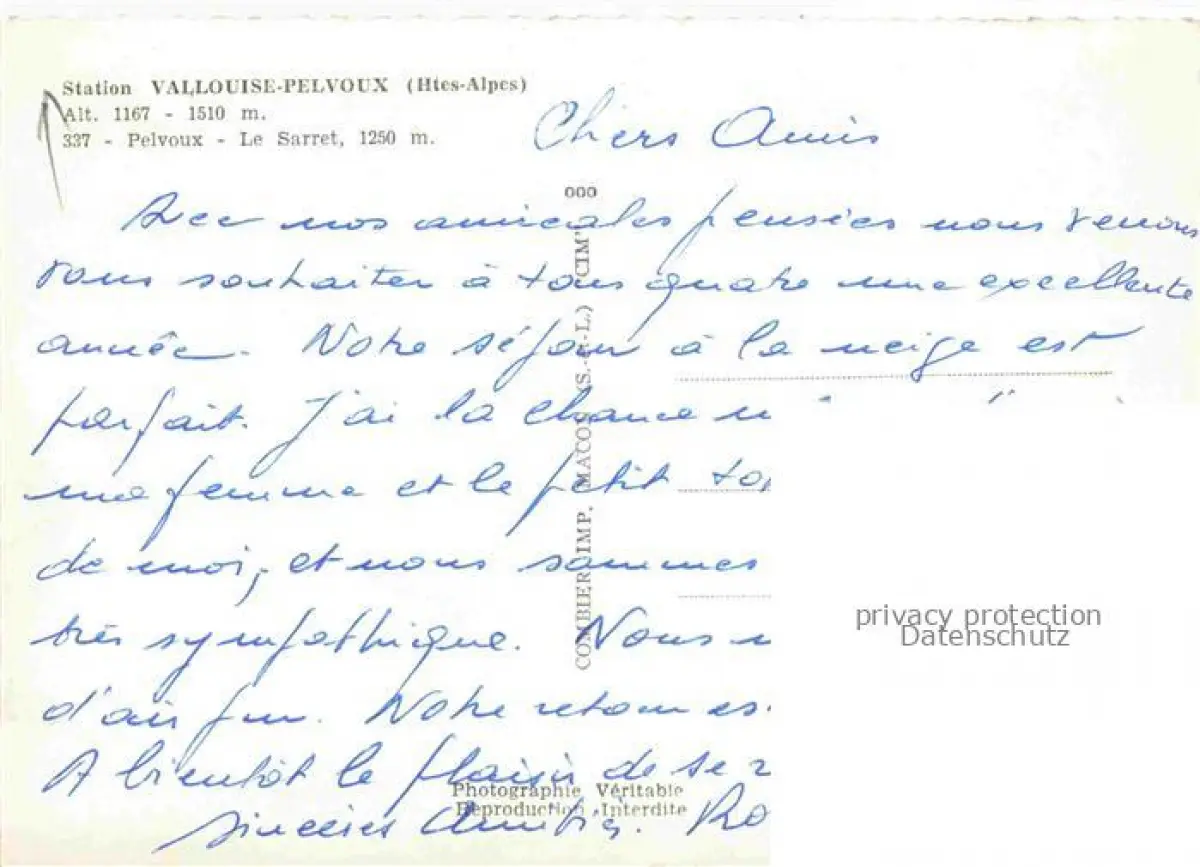 Station VALLOUISE-PELVOUX (Htes-Alpes)
Alt. 1167 - 1510 m.
337 - Pelvoux - Le Sarret, 1250 m.
Chers Amis
000
Avec nos amicales pensées nous venons
vous souhaiter à tous quatre une excellente
année. Notre séjour à la neige est
parfait. J'ai la chance
ma femme et le petit
de moi, et nous sommes
très sympathique. Nous
d'air pur. Notre retour
A bientôt le plaisir de se
sincères Amitiés.
COMBIER IMP. MACON (S.-et-L.) "CIM"
Photographie Véritable
Reproduction Interdite
privacy protection
Datenschutz